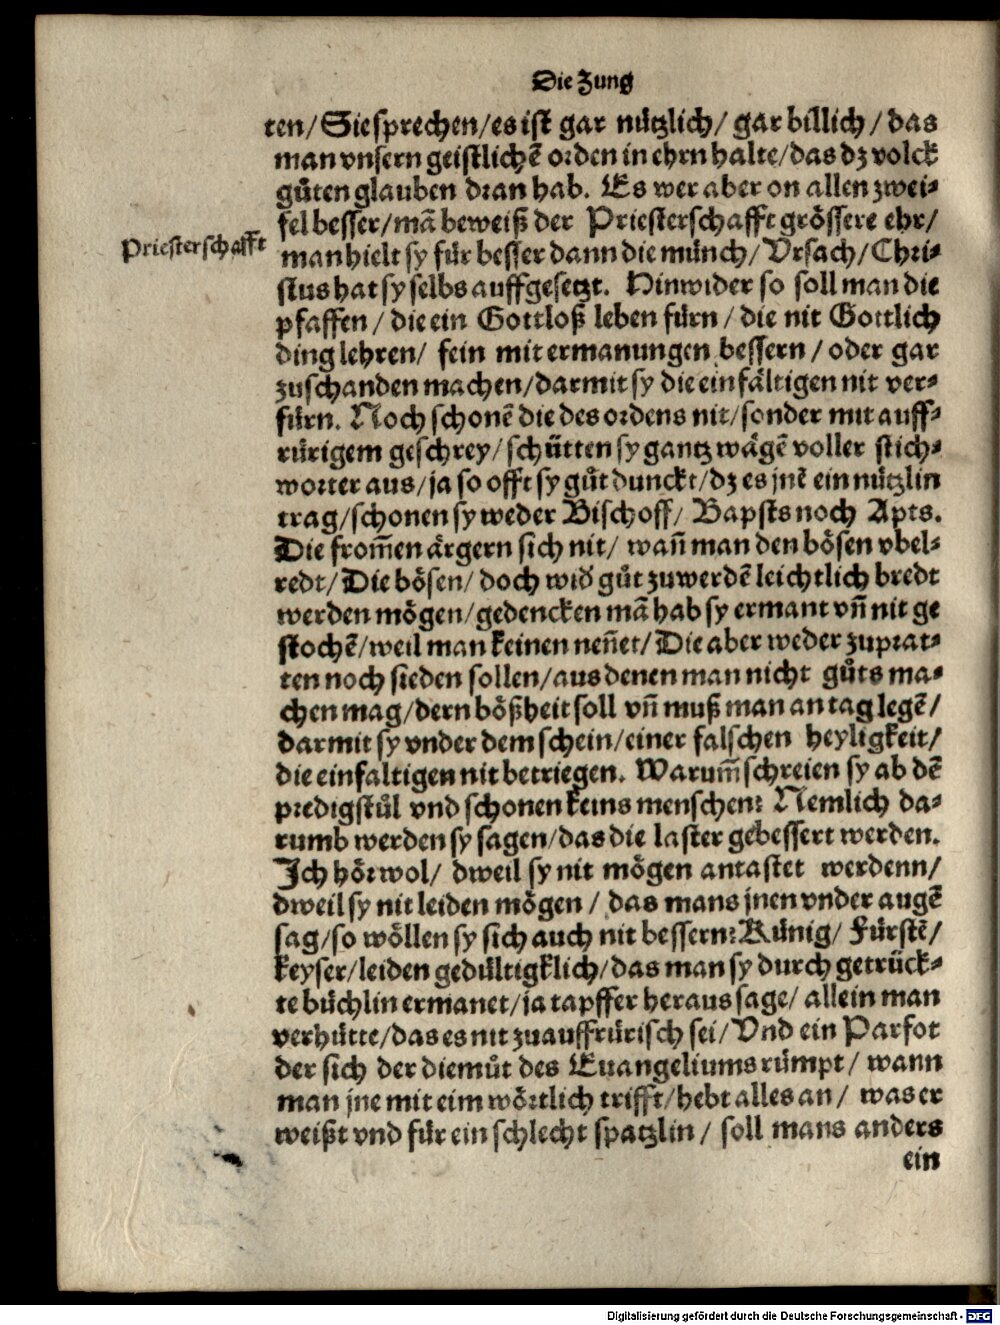 Die Zung
ten/ Sie sprechen/ es ist gar nützlich/ gar billich/ das
man vnsern geistlichẽ orden in ehrn halte/ das dz volck
gůten glauben dran hab. Es wer aber on allen zwei-
fel besser/ mã beweiß der Priesterschafft grössere ehr/
Priesterschafft
man hielt sy für besser dann die münch/ Vrsach/ Chri-
stus hat sy selbs auffgesetzt. Hinwider so soll man die
pfaffen / die ein Gottloß leben fürn / die nit Gottlich
ding lehren/ fein mit ermanungen bessern / oder gar
zuschanden machen/ darmit sy die einfältigen nit ver-
fürn. Noch schonẽ die des ordens nit/ sonder mit auff-
rürigem geschrey/ schütten sy gantz wägẽ voller stich-
worter aus/ ja so offt sy gůt dunckt/ dz es jnẽ ein nützlin
trag/ schonen sy weder Bischoff/ Bapsts noch Apts.
Die from̃en ärgern sich nit/ wañ man den bösen vbel-
redt/ Die bösen/ doch wid̕ gůt zuwerdẽ leichtlich bredt
werden mögen/ gedencken mã hab sy ermant vñ nit ge
stochẽ/ weil man keinen neñet/ Die aber weder zuprat-
ten noch sieden sollen/ aus denen man nicht gůts ma-
chen mag/ dern bößheit soll vñ muß man an tag legẽ/
darmit sy vnder dem schein/ einer falschen heyligkeit/
die einfaltigen nit betriegen. Warum̃ schreien sy ab dẽ
predigstůl vnd schonen keins menschen? Nemlich da-
rumb werden sy sagen/ das die laster gebessert werden.
Ich hör wol/ dweil sy nit mögen antastet werdenn/
dweil sy nit leiden mögen / das mans jnen vnder augẽ
sag/ so wöllen sy sich auch nit bessern? Künig/ Fürstẽ/
keyser/ leiden gedültigklich/ das man sy durch getrück-
te büchlin ermanet/ ja tapffer heraus sage/ allein man
verhütte/ das es nit zuauffrürisch sei/ Vnd ein Parfot
der sich der diemůt des Euangeliums rümpt/ wann
man jne mit eim wörtlich trifft/ hebt alles an/ was er
weißt vnd für ein schlecht spatzlin / soll mans anders
ein
Digitalisierung gefördert durch die Deutsche Forschungsgemeinschaft - DFG